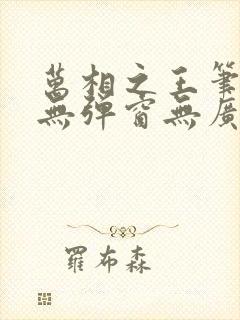 萬相之王筆
無彈窗無廣
羅布森